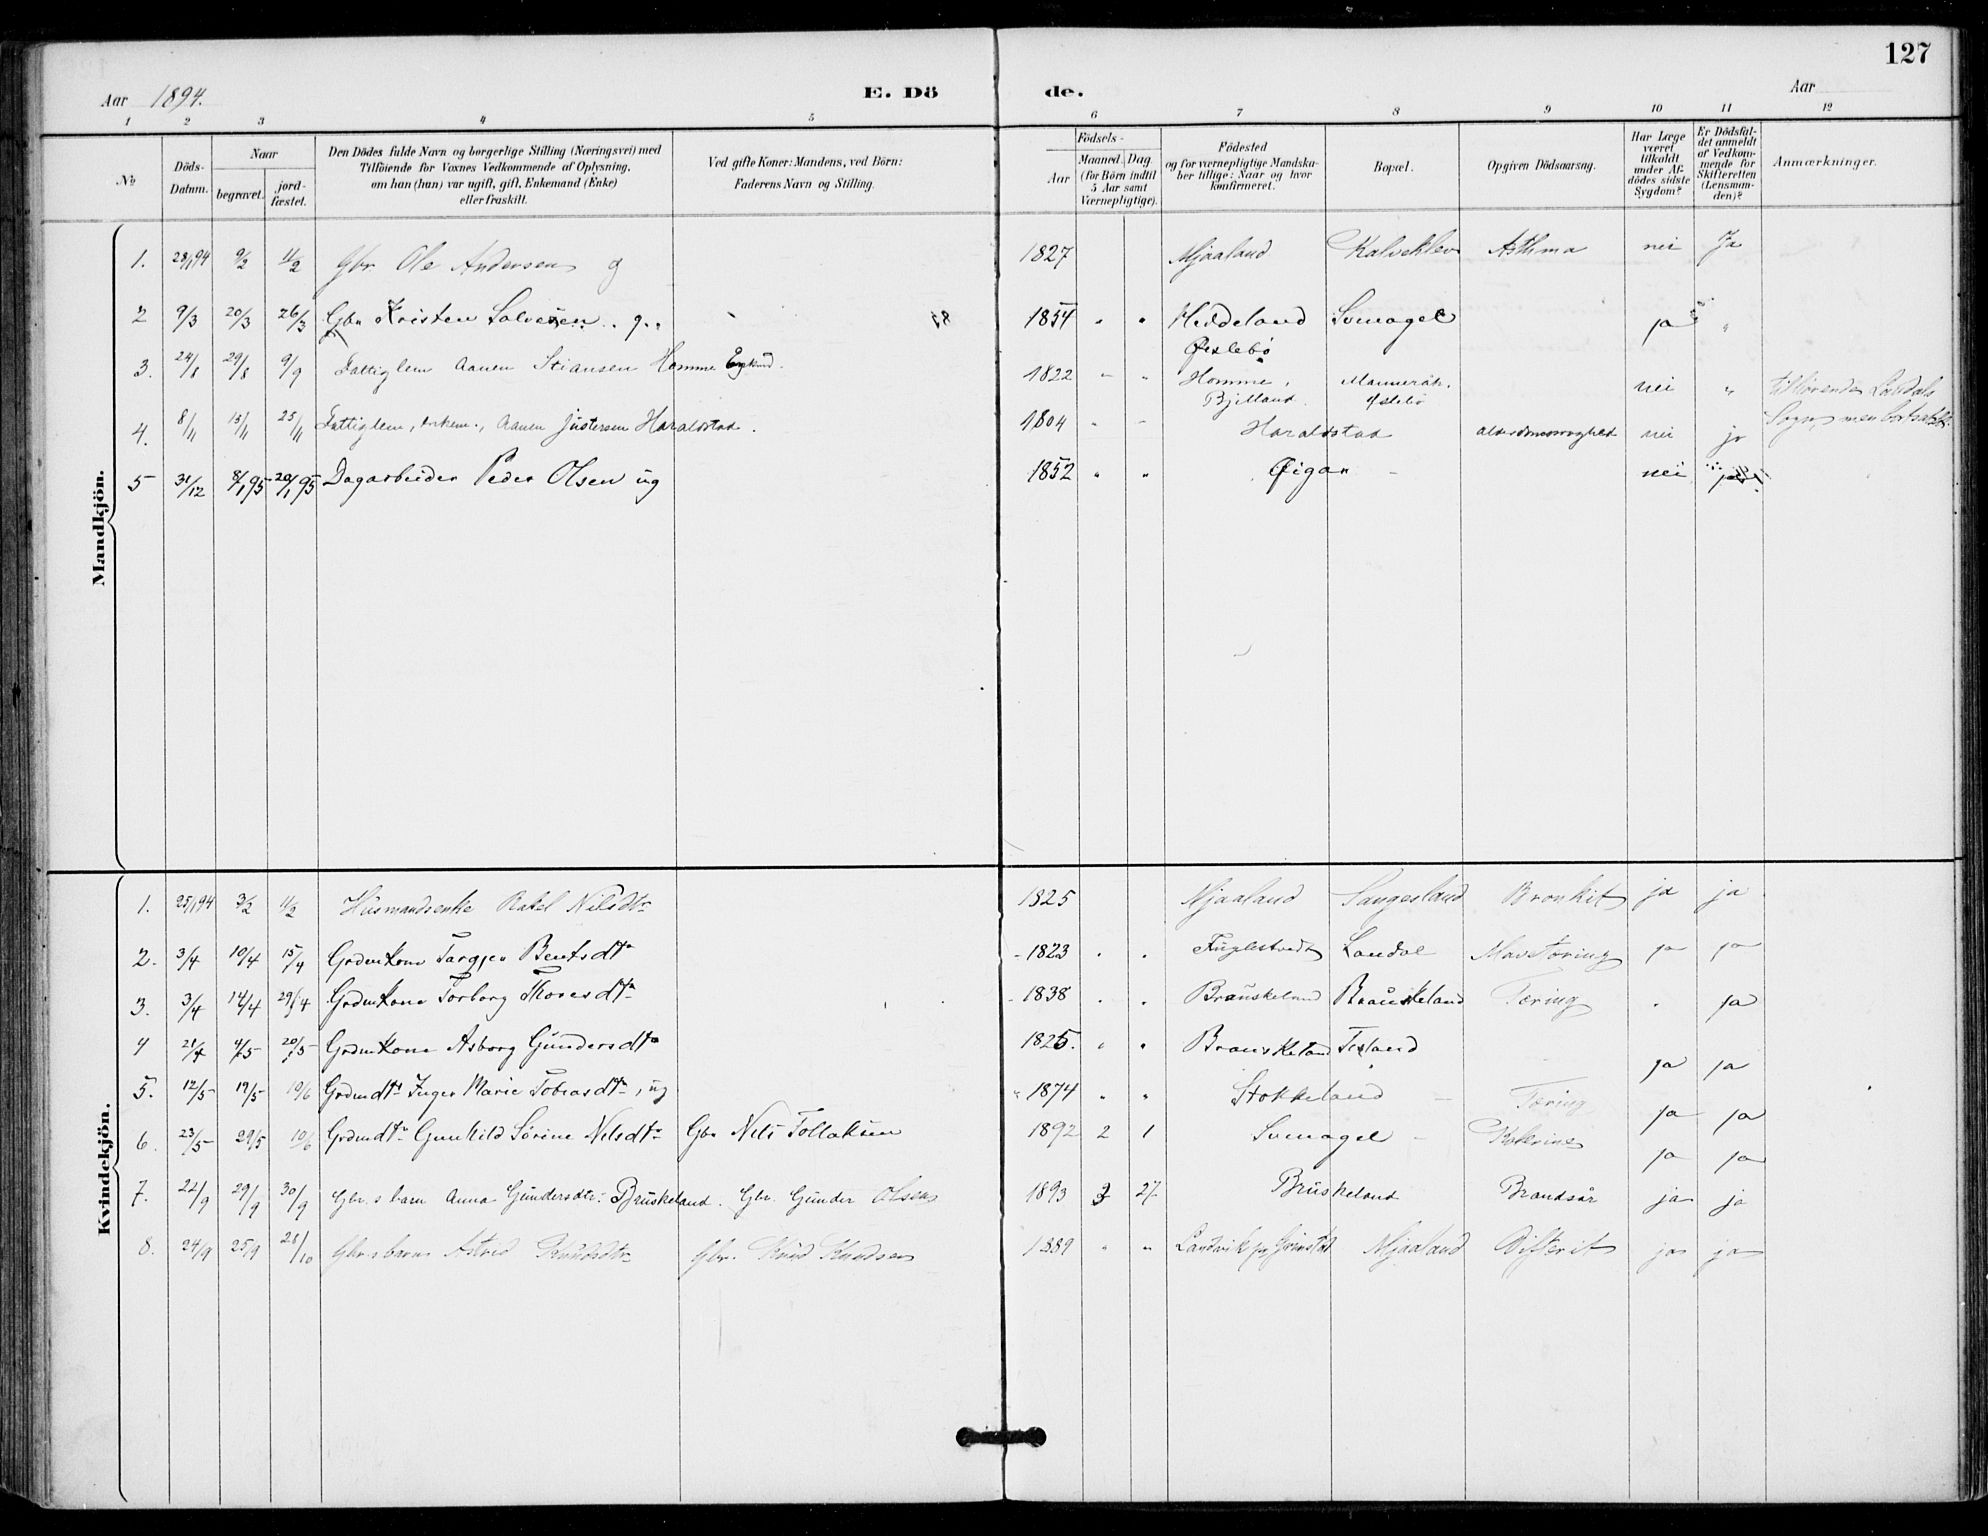 127
Aar 1894. E. Dö de. Aar
1 2 3 4 5 6 7 8 9 10 11 12
No
Döds-Datum.
Naar
begravet. jord-fæstet.
Den Dödes fulde Navn og borgerlige Stilling (Næringsvei) med
Tilföiende for Voxnes Vedkommende af Oplysning,
om han (hun) var ugift, gift, Enkemand (Enke)
eller fraskilt.
Ved gifte Koner: Mandens, ved Börn:
Faderens Navn og Stilling.
Födsels-
Aar
Maaned. Dag.
(for Börn indtil
5 Aar samt
Værnepligtige).
Födested
og for værnepligtige Mandska-
ber tillige: Naar og hvor
konfirmeret.
Bopæl.
Opgiven Dödsaarsag.
Har Læge
været
tilkaldt
under Af-
dödes sidste
Sygdom?
Er Dödsfal-
det anmeldt
af Vedkom-
mende for
Skifteretten
(Lensman-
den)?
Anmærkninger.
Mandkjön.
1. 28/1 94 9/2 11/2 Gbr Ole Andersen g 1827 Mjaaland Kalvehlev Asthma nei Ja
2 9/3 20/3 26/3 Gbr Kristen Salvesen g. 1854 " " Heddeland Øislebø ja "
3. 24/8 29/8 9/9 Fattiglem Aanen Stiansen Homme 1822 " " Homme, Bjelland nei " tilhørende Laudals
4. 8/11 15/11 25/11 Fattiglem, enkem., Aanen Justersen Haraldstad. 1804 " " Haraldstad nei ja Sogn, men bortsatt
5 31/12 8/1 95 20/1 95 Dagarbeider Peder Olsen ug 1852 " " Øigar - nei ja
Kvindekjön.
1. 25/1 94 3/2 11/2 Husmandsenke Rakel Nilsdtr 1825 Mjaaland Sangesland Bronkit ja ja
2. 3/4 10/4 15/4 Grdmkone Targjer Bentsdtr 1823 " " Fuglestvedt Laudal ja ja
3. 3/4 14/4 29/4 Grdmkone Torborg Thoresdtr 1838 " " Brauskeland Brauskeland Tæring " ja
4 21/4 4/5 20/5 Grdmkone Asborg Gundersdtr 1825. " " Brauskeland ja ja
5. 12/5 19/5 10/6 Grdmdtr Inger Marie Tobiasdtr, ug 1874 " " Stokkeland - Tæring ja ja
6. 23/5 29/5 10/6 Grdmdtr Gunhild Sørine Nilsdtr Gbr Nils Tollaksen 1892 2 1 Svinagel - Kolerine ja ja
7. 22/9 29/9 30/9 Gbr.s barn Anna Gundersdtr. Bruskeland. Gbr. Gunder Olsen 1893 3 27 Bruskeland Brandsår ja ja
8. 24/9 25/9 28/10 Gbrs barn Astrid Knudsdtr Gbr. Knud Knudsen 1889 " " Landvik pr Grimstad Mjaaland Difterit ja ja